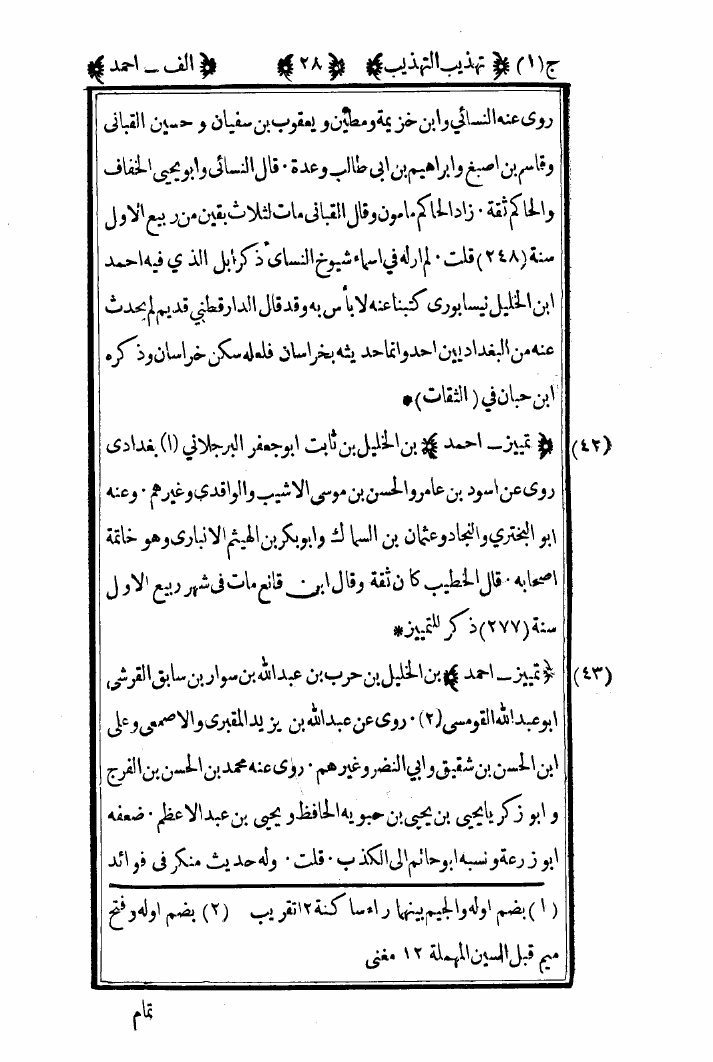 ج(١) ﴿ تهذيب التهذيب ﴾ ﴿ ٢٨ ﴾ ﴿ الف ــ احمد ﴾
روى عنه النسائي وابن خزيمة ومطين ويعقوب بن سفيان و حسين القبانى
وقاسم بن اصبغ وابراهيم بن ابى طالب وعدة ٠ قال النسائى وابو يحيى الخفاف
والحاكم ثقة ٠ زاد الحاكم مامون وقال القبانى مات لثلاث بقين من ربيع الاول
سنة (٢٤٨) قلت ٠ لم ار له في اسماء شيوخ النساى ذكر ابل الذي فيه احمد
ابن الخليل نيسابورى كتبنا عنه لا بأس به وقد قال الدارقطني قديم لم يحدث
عنه من البغداديين احد وانما حديثه بخراسان فلعله سكن خراسان وذكره
ابن حبان في ( الثقات )*
(٤٢) ﴿ تمييز ــ احمد ﴾ بن الخليل بن ثابت ابو جعفر البرجلاني (١) بغدادى
روى عن اسود بن عامر والحسن بن موسى الاشيب والواقدي وغيرهم ٠ وعنه
ابو البختري والنجاد وعثمان بن السماك وابو بكر بن الهيثم الانبارى وهو خاتمة
اصحابه ٠ قال الخطيب كان ثقة وقال ابن قانع مات فى شهر ربيع الاول
سنة (٢٧٧) ذكر للتمييز*
(٤٣) ﴿ تمييز ــ احمد ﴾ بن الخليل بن حرب بن عبدالله بن سوار بن سابق القرشى
ابو عبدالله القومسى (٢) ٠ روى عن عبدالله بن يزيد المقبرى والاصمعى وعلى
ابن الحسن بن شقيق وابي النضر وغيرهم ٠ روى عنه محمد بن الحسن بن الفرج
و ابو زكريا يحيى بن يحيى بن حبويه الحافظ و يحيى بن عبد الاعظم ٠ ضعفه
ابو زرعة ونسبه ابو حاتم الى الكذب ٠ قلت ٠ وله حديث منكر فى فوائد
(١) بضم اوله والجيم بينهما راء ساكنة ١٢ تقريب (٢) بضم اوله وفتح
ميم قبل السين المهملة ١٢ مغنى
تمام